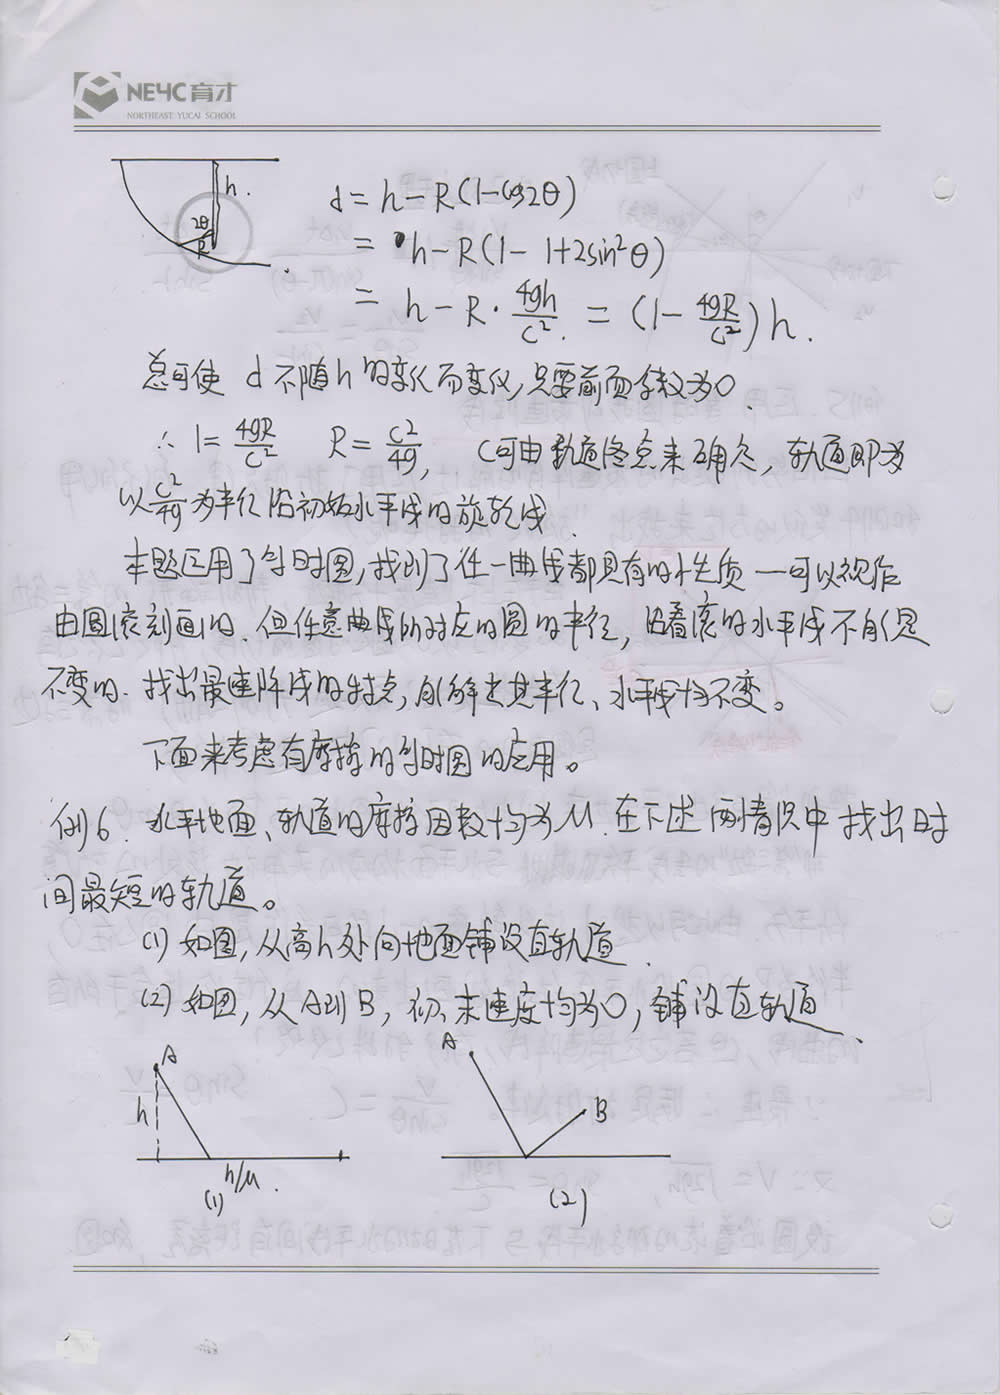 NEYC育才
NORTHEAST YUCAI SCHOOL
h.
2θ
R
d = h-R(1-cos2θ)
= h-R(1-1+2sin²θ)
= h-R·4gh/c². = (1-4gR/c²)h.
总可使 d 不随h的变化而变化,只要前面系数为0.
∴ 1=4gR/c² R=c²/4g, C可由轨道终点来确定,轨道即为
以c²/4g为半径沿初始水平线的旋轮线.
本题应用了等时圆,找到了任一曲线都具有的性质—可以视作
由圆滚刻画的.但任意曲线所对应的圆的半径,沿着滚的水平线不能是
不变的.找出最速降线的特点,能解出其半径、水平线均不变。
下面来考虑有摩擦的等时圆的应用。
例6. 水平地面、轨道的摩擦因数均为μ.在下述两情况中找出时
间最短的轨道。
(1) 如图,从高h处向地面铺设直轨道.
(2) 如图,从A到B,初、末速度均为0,铺设直轨道.
A
h
h/μ.
(1)
A
B
(2)